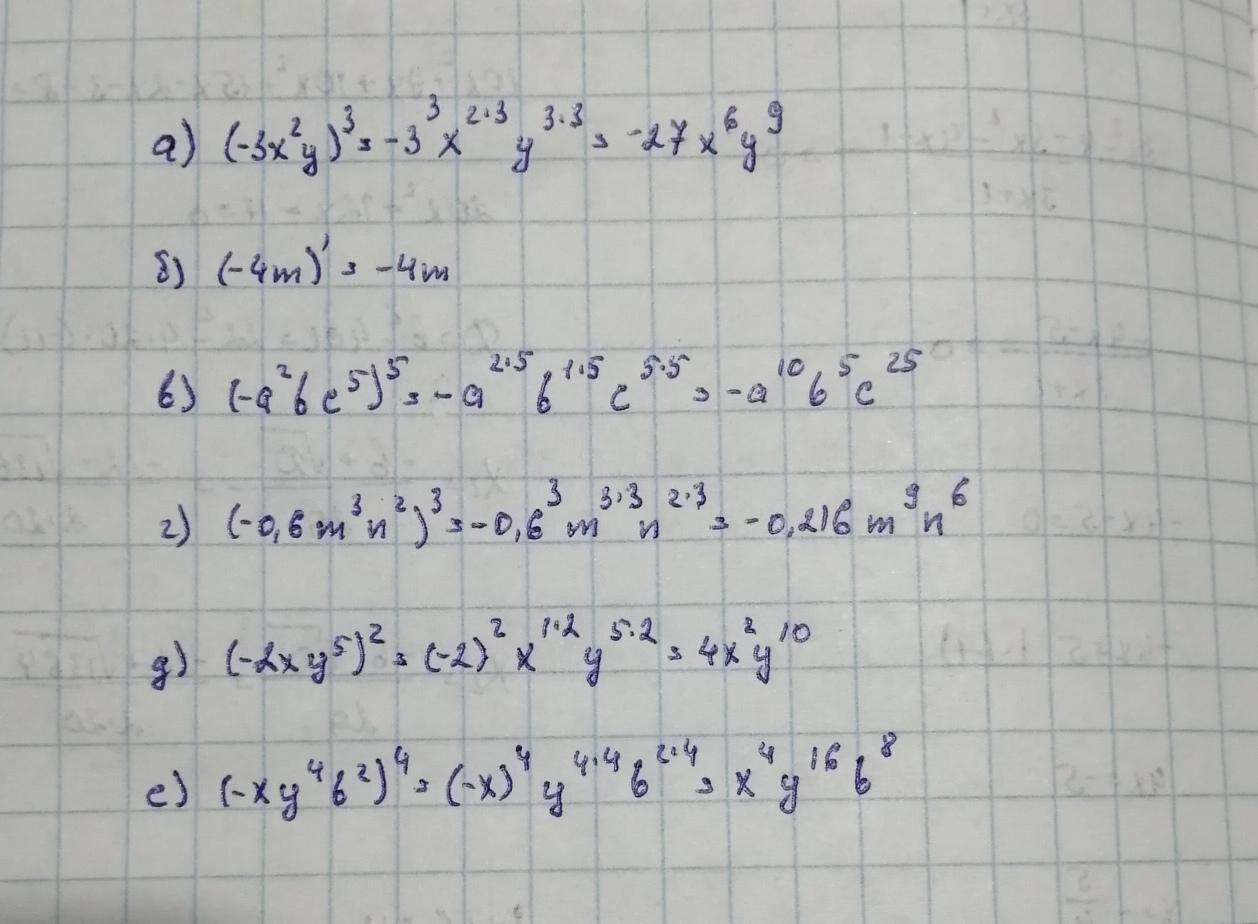 а) (-3x²y)³ = -3³x^{2·3}y^{3·3} = -27x⁶y⁹
б) (-4m)¹ = -4m
в) (-a²bc⁵)⁵ = -a^{2·5}b^{1·5}c^{5·5} = -a¹⁰b⁵c²⁵
г) (-0,6m³n²)³ = -0,6³m^{3·3}n^{2·3} = -0,216m⁹n⁶
д) (-2xy⁵)² = (-2)²x^{1·2}y^{5·2} = 4x²y¹⁰
е) (-xy⁴b²)⁴ = (-x)⁴y^{4·4}b^{2·4} = x⁴y¹⁶b⁸